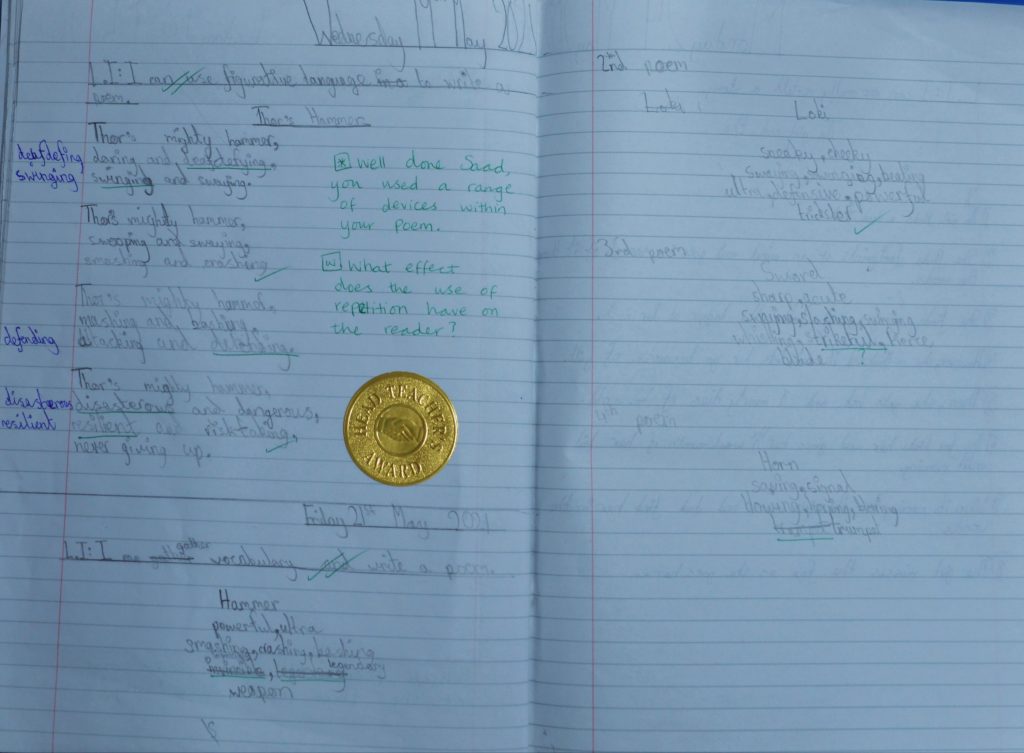 Wednesday 19th May 2021
L.I: I can use figurative language to write a
poem.
Thor's Hammer
Thor's mighty hammer,
daring and deafdefing,
swinging and swaying.
deafdefing
swinging
Thor's mighty hammer,
swooping and swaying,
smashing and crashing
Thor's mighty hammer,
mashing and bashing,
attacking and defending.
defending
Thor's mighty hammer,
disasterous and dangerous,
resilient and risktaking,
never giving up.
disasterous
resilient
* Well done Saad,
you used a range
of devices within
your poem.
W What effect
does the use of
repetition have on
the reader?
HEAD TEACHER'S
AWARD
Friday 21st May 2021
L.I: I can gather vocabulary and write a poem.
Hammer
powerful, ultra
smashing, crashing, bashing
legendary
weapon
2nd poem
Loki
Loki
sneaky, cheeky
ultra, defensive, powerful
trickster
3rd poem
Sword
sharp,
slashing,
strikeful, fierce
blade ?
4th poem
Horn
signal